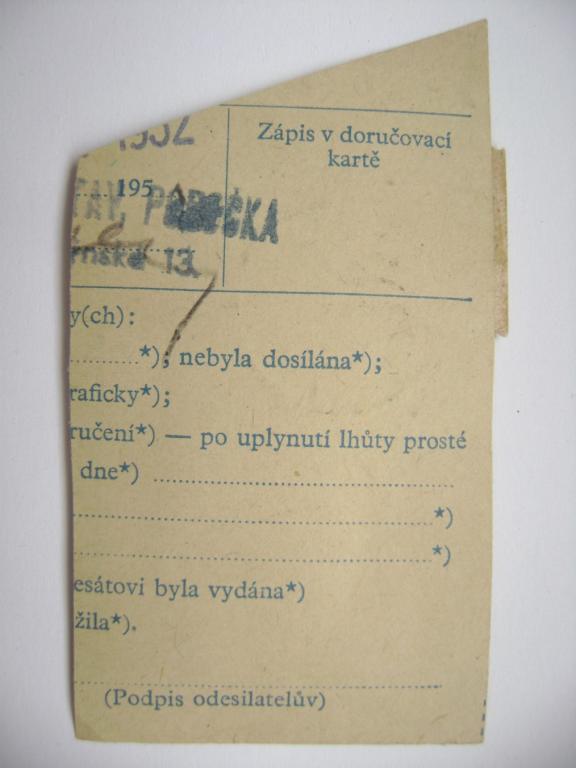 1952
Zápis v doručovací
kartě
195
13.
y(ch):
*); nebyla dosílána*);
raficky*);
ručení*) — po uplynutí lhůty prosté
dne*)
*)
*)
esátovi byla vydána*)
žila*).
(Podpis odesilatelův)